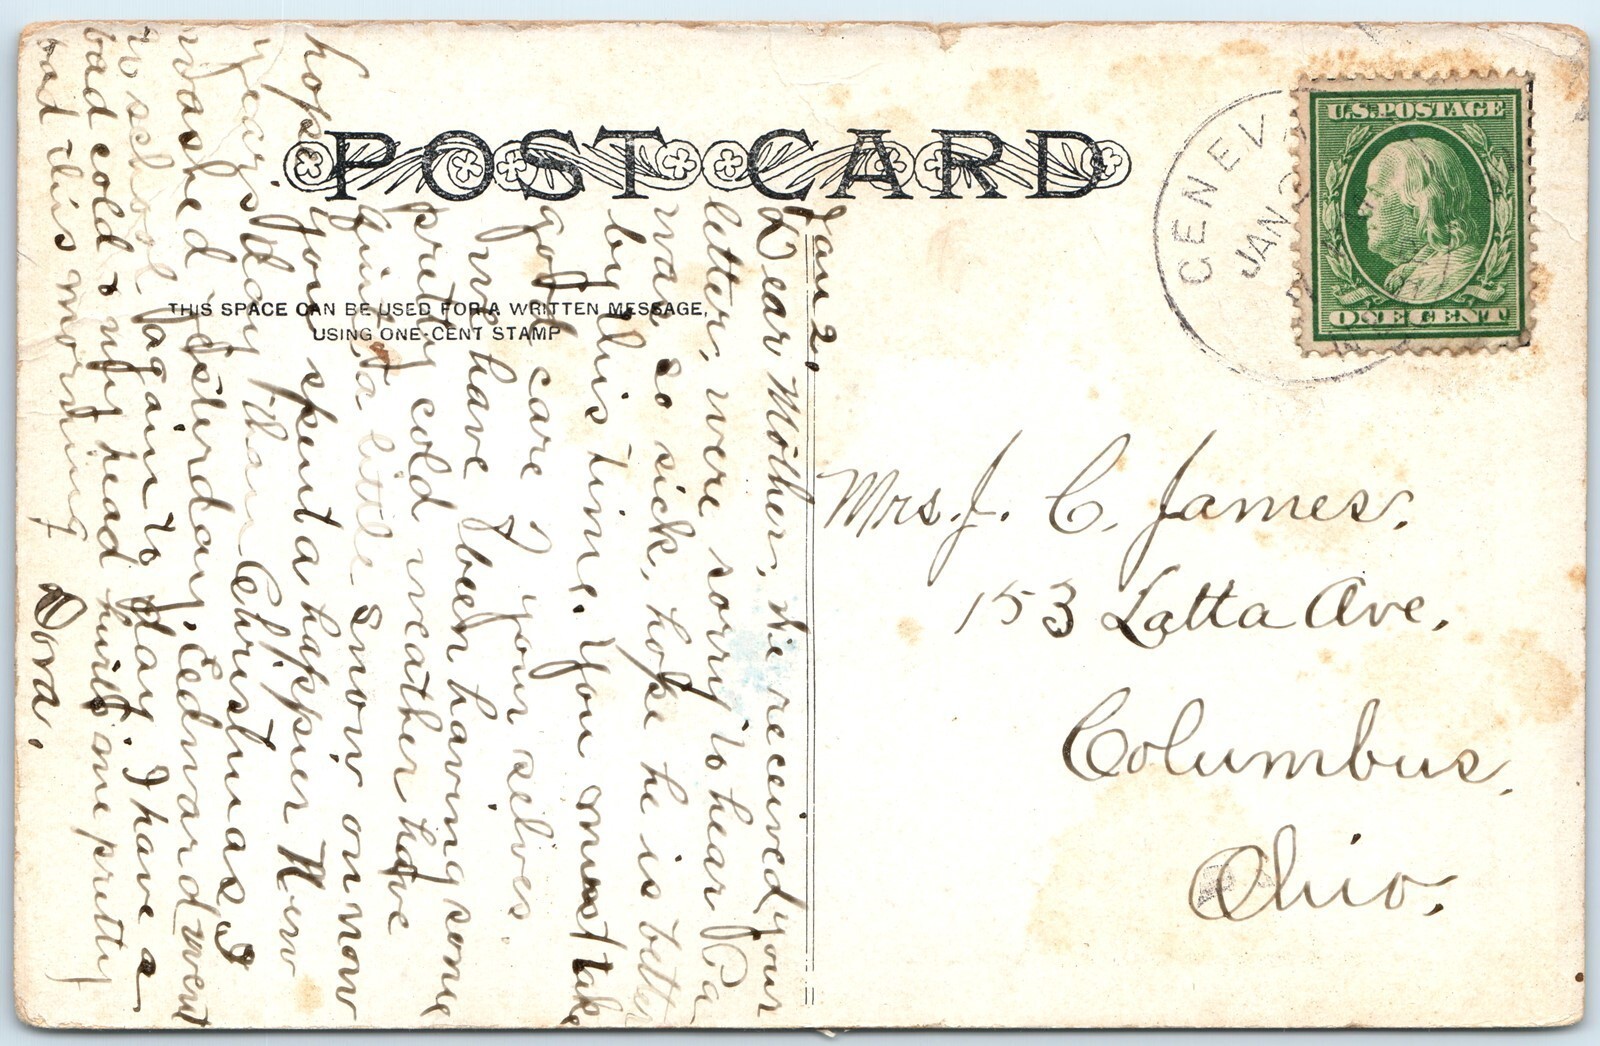 POST CARD
THIS SPACE CAN BE USED FOR A WRITTEN MESSAGE,
USING ONE-CENT STAMP
U.S. POSTAGE
ONE CENT
GENEV
JAN
Mrs. J. C. James.
153 Latta Ave.
Columbus,
Ohio.
Jan 2,
Dear Mother, we received your
letter, were sorry to hear Pa
was so sick, hope he is better
by this time. You must take
good care of your selves.
we have been having some
pretty cold weather have
quite a little snow on now
hope you spent a happier New
years day than Christmas. I
washed yesterday. Eedward went
to school again to day. I have a
bad cold & my head hurts me pretty
bad this morning Dora.